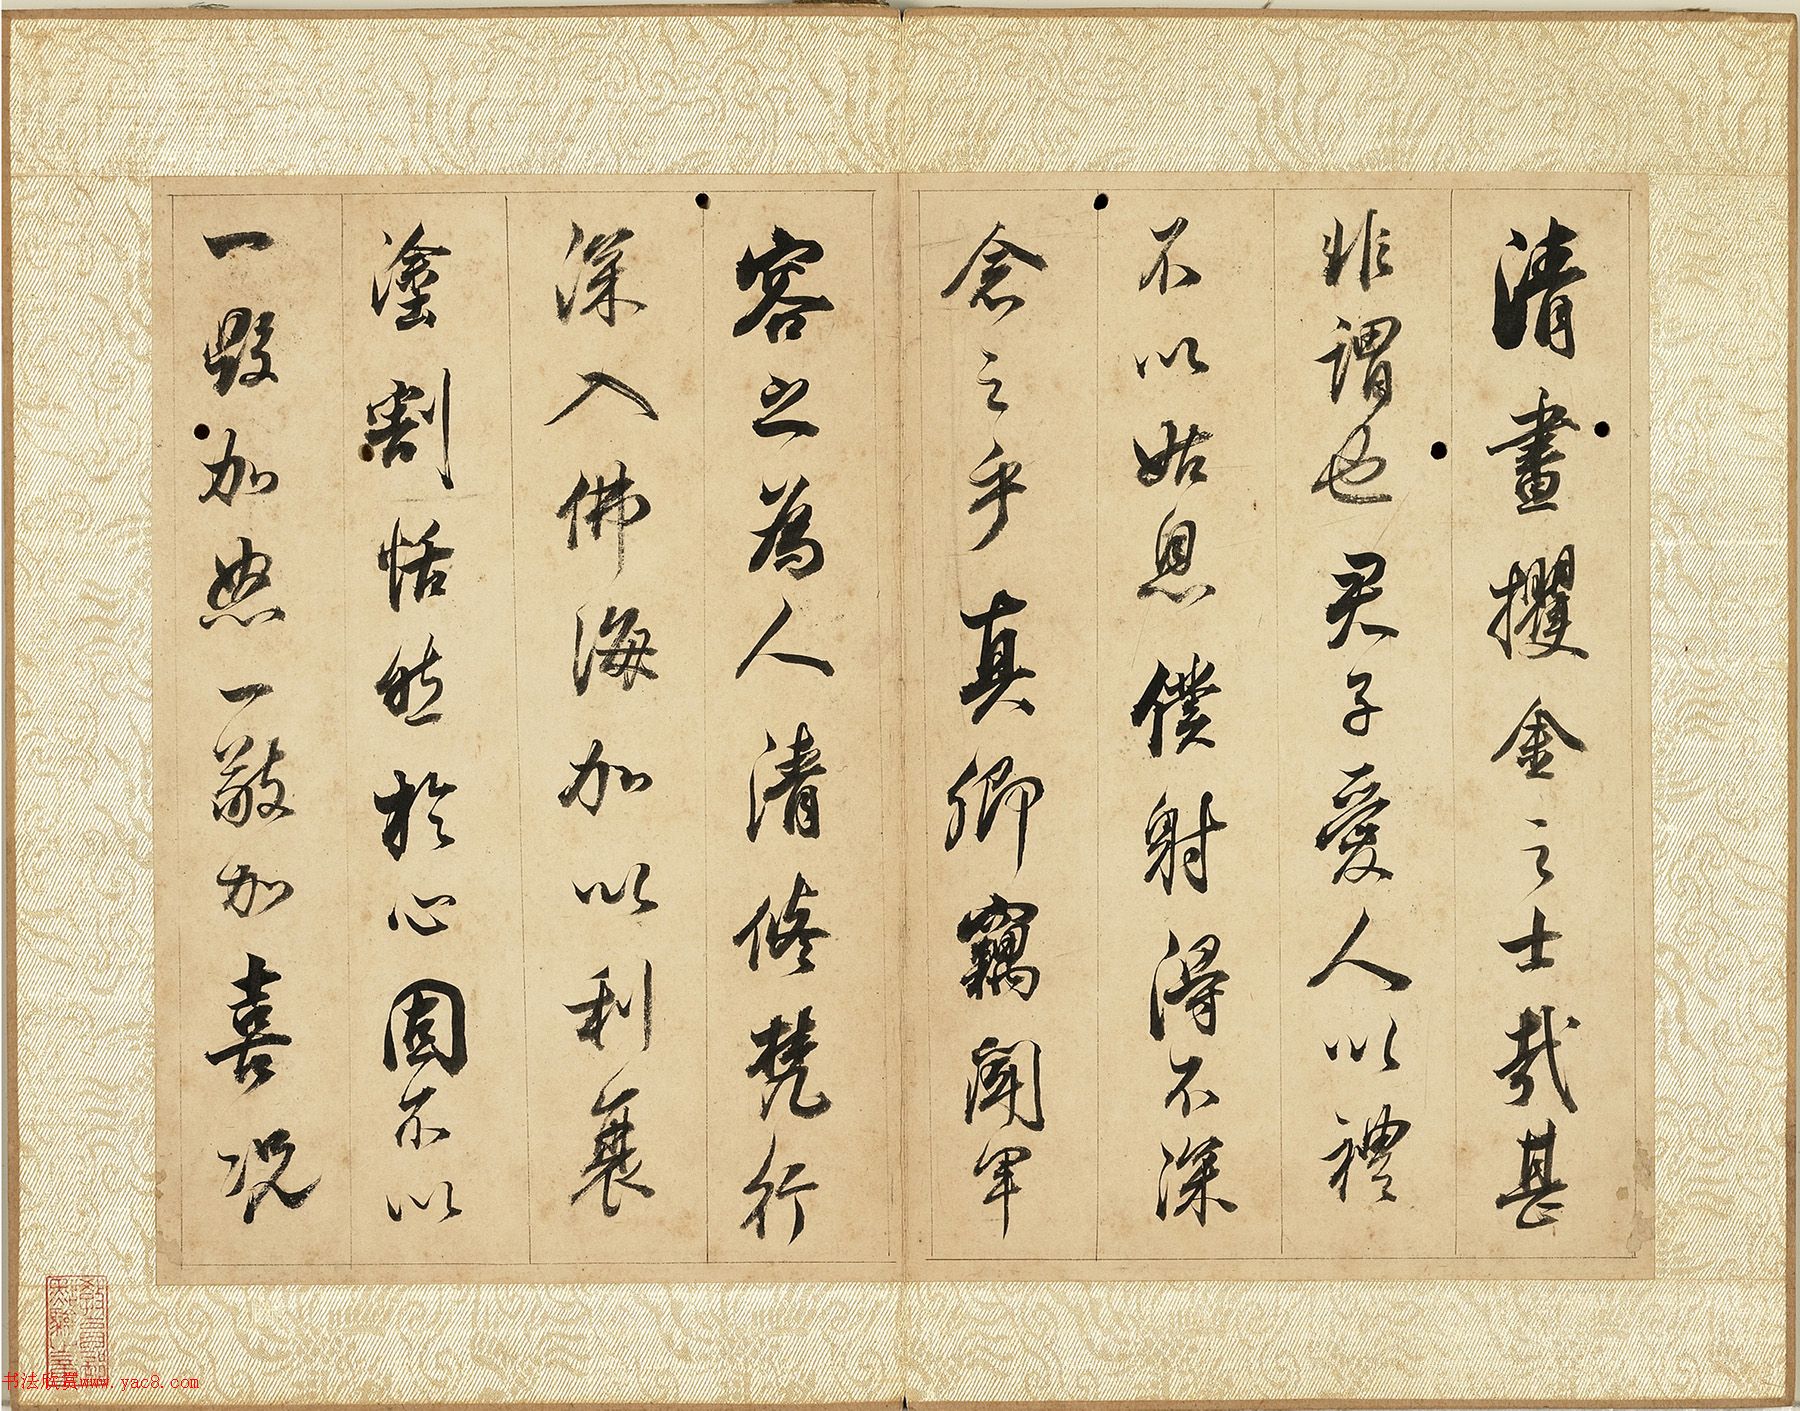 清晝攫金之士哉甚
非謂也君子愛人以禮
不以姑息僕射得不深
念之乎真卿竊聞軍
容之為人清脩梵行
深入佛海加以利衰
塗割恬然於心固不以
一毀加怒一敬加喜况
书法欣赏www.yac8.com